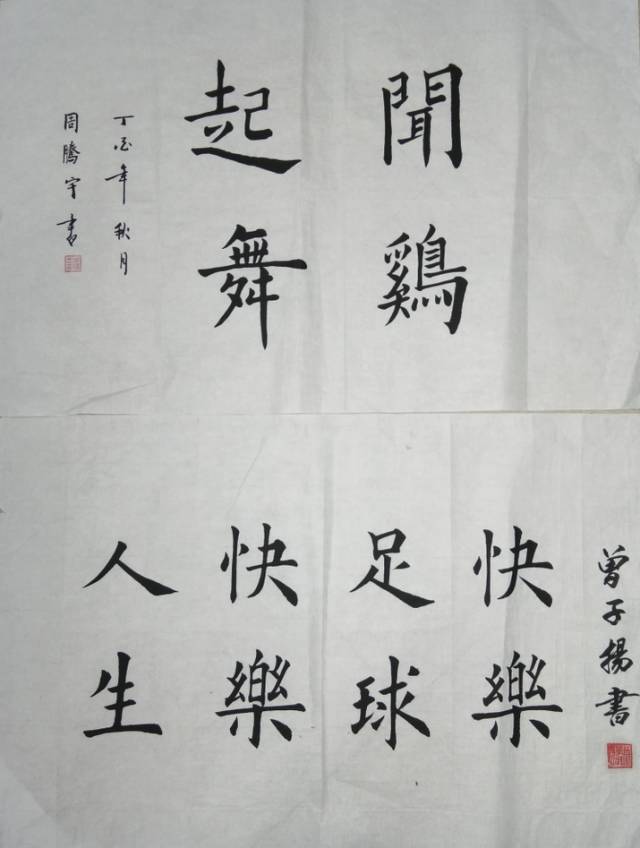 聞鷄
起舞
丁酉年秋月
周騰宇書
曾子揚書
快樂
足球
快樂
人生